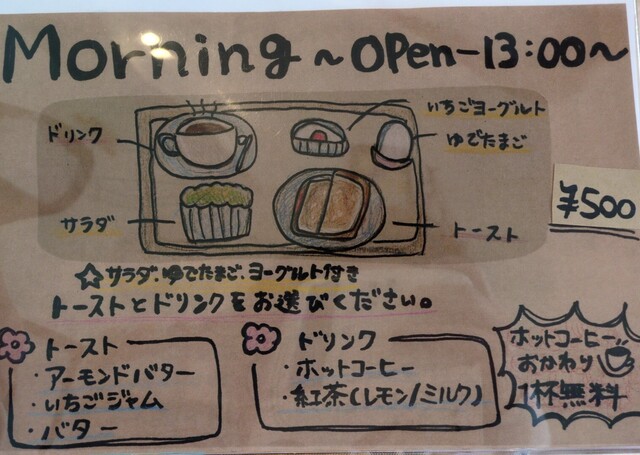 Morning ~ OPen-13:00~
ドリンク
いちごヨーグルト
ゆでたまご
サラダ
トースト
¥500
☆サラダ、ゆでたまご、ヨーグルト付き
トーストとドリンクをお選びください。
トースト
・アーモンドバター
・いちごジャム
・バター
ドリンク
・ホットコーヒー
・紅茶(レモン/ミルク)
ホットコーヒー
おかわり
1杯無料